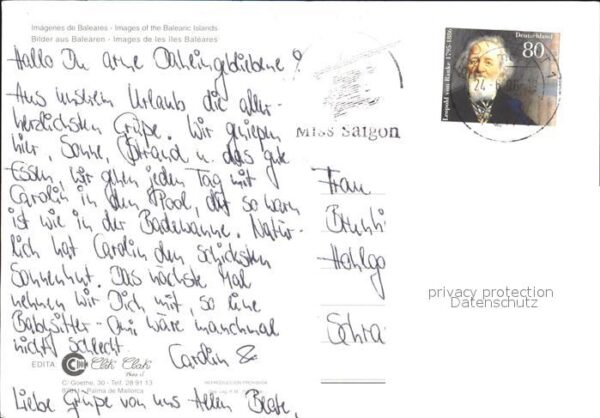 Imágenes de Baleates - Images of the Balearic Islands
Bilder aus Balearen - Images de les îles Baléares
Hallo Du arme Daheimgebliebene!
Aus unserem Urlaub die aller-
herzlichsten Grüße. Wir genießen
hier, Sonne, Strand u. das gute
Essen, wir gehen jeden Tag mit
Carolin in den Pool, der so warm
ist wie in der Badewanne. Natür-
lich hat Carolin den schicksten
Sonnenhut. Das nächste Mal
nehmen wir Dich mit, so eine
Babysitter-Omi wäre manchmal
nicht schlecht.
Carolin &
EDITA Clak Clak
C/ Goethe, 30 - Telf. 28 91 13
Palma de Mallorca
REPRODUCCION PROHIBIDA
Liebe Grüße von uns Allen Beate,
Miss Saigon
Deutschland
80
Leopold von Ranke 1795-1886
24
Frau
Hohlgo
Schra
privacy protection
Datenschutz